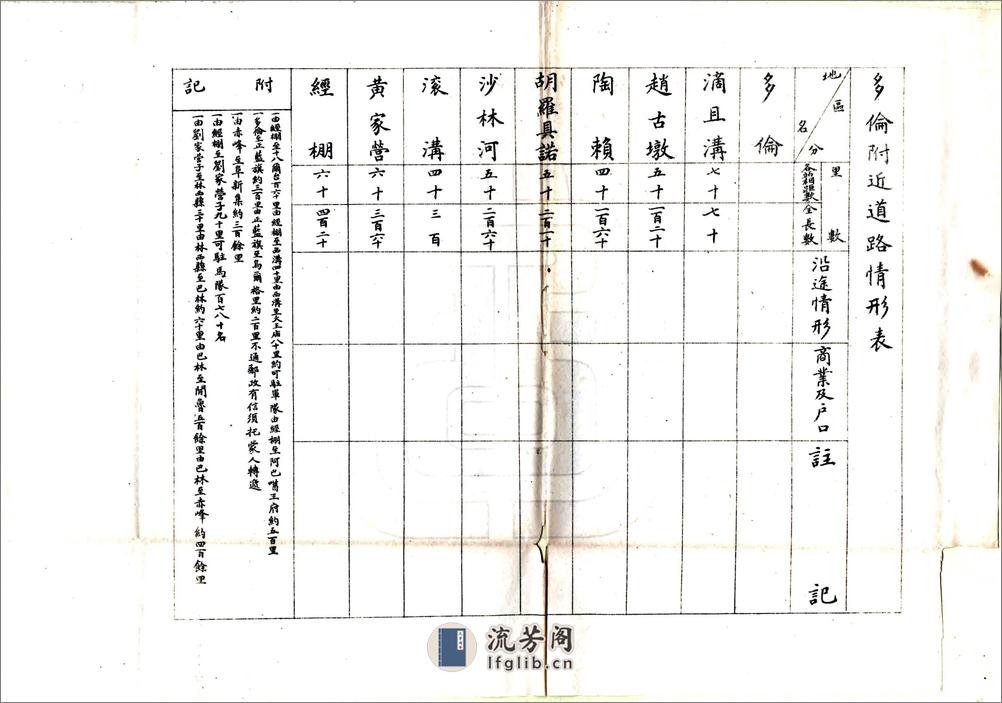 多倫附近道路情形表
地名 區分
里數
各站相距數
全長數
沿途情形
商業及戶口
註記
多倫
滴且溝 七十 七十
趙古墩 五十 一百二十
陶賴 四十 一百六十
胡羅具諾 五十 二百一十
沙林河 五十 二百六十
滚溝 四十 三百
黄家營 六十 三百六十
經棚 六十 四百二十
附記
一由經棚至十八爾台百六十里由經棚至西溝四十里由西溝至大王庙八十里約可駐軍隊由經棚至阿巴噶王府約五百里
一多倫至正藍旗約三百里由正藍旗至烏爾格里約二百里不通郵政有信須托蒙人轉遞
一由赤峰至阜新集約三百餘里
一由經棚至劉家營子九十里可駐馬隊百七八十名
一由劉家營子至林西縣三十里由林西縣至巴林約六十里由巴林至開魯五百餘里由巴林至赤峰約四百餘里
流芳阁
lfglib.cn